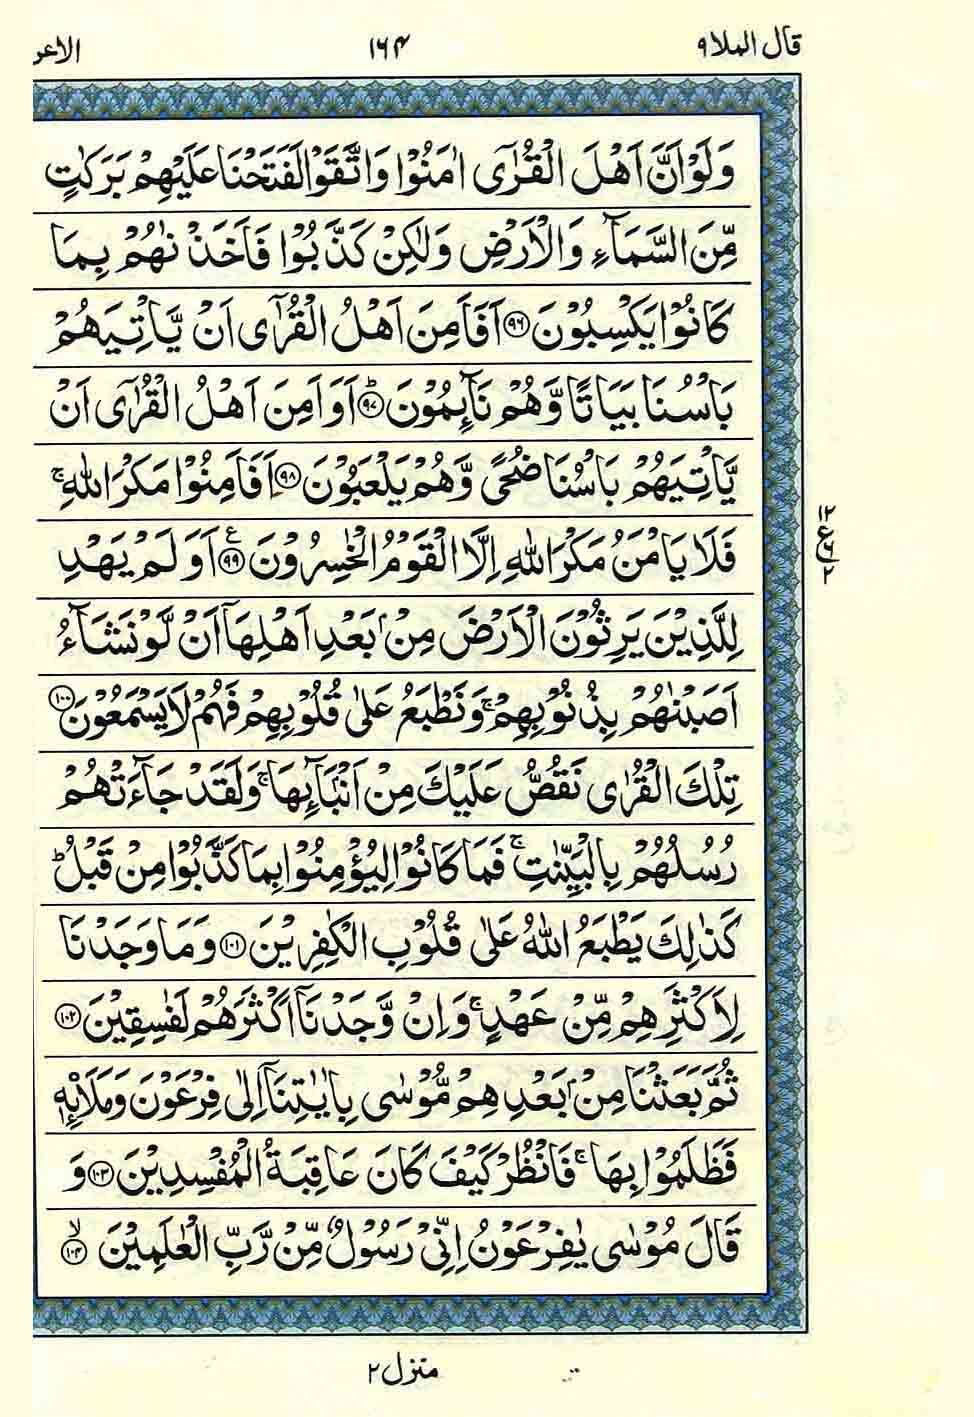 قال الملا ٩
١٦٤
الاعر
وَلَوْ اَنَّ اَهْلَ الْقُرٰٓى اٰمَنُوْا وَاتَّقَوْا لَفَتَحْنَا عَلَيْهِمْ بَرَكٰتٍ
مِّنَ السَّمَآءِ وَالْاَرْضِ وَلٰكِنْ كَذَّبُوْا فَاَخَذْنٰهُمْ بِمَا
كَانُوْا يَكْسِبُوْنَ ﴿٩٦﴾ اَفَاَمِنَ اَهْلُ الْقُرٰٓى اَنْ يَّاْتِيَهُمْ
بَاْسُنَا بَيَاتًا وَّهُمْ نَآئِمُوْنَ ؕ﴿٩٧﴾ اَوَاَمِنَ اَهْلُ الْقُرٰٓى اَنْ
يَّاْتِيَهُمْ بَاْسُنَا ضُحًى وَّهُمْ يَلْعَبُوْنَ ﴿٩٨﴾ اَفَاَمِنُوْا مَكْرَ اللّٰهِ ۚ
فَلَا يَاْمَنُ مَكْرَ اللّٰهِ اِلَّا الْقَوْمُ الْخٰسِرُوْنَ ﴿٩٩﴾ ع اَوَلَمْ يَهْدِ
لِلَّذِيْنَ يَرِثُوْنَ الْاَرْضَ مِنْۢ بَعْدِ اَهْلِهَآ اَنْ لَّوْ نَشَآءُ
اَصَبْنٰهُمْ بِذُنُوْبِهِمْ ۚ وَنَطْبَعُ عَلٰى قُلُوْبِهِمْ فَهُمْ لَا يَسْمَعُوْنَ ﴿١٠٠﴾
تِلْكَ الْقُرٰى نَقُصُّ عَلَيْكَ مِنْ اَنْۢبَآئِهَا ۚ وَلَقَدْ جَآءَتْهُمْ
رُسُلُهُمْ بِالْبَيِّنٰتِ ۚ فَمَا كَانُوْا لِيُؤْمِنُوْا بِمَا كَذَّبُوْا مِنْ قَبْلُ ؕ
كَذٰلِكَ يَطْبَعُ اللّٰهُ عَلٰى قُلُوْبِ الْكٰفِرِيْنَ ﴿١٠١﴾ وَمَا وَجَدْنَا
لِاَكْثَرِهِمْ مِّنْ عَهْدٍ ۚ وَاِنْ وَّجَدْنَآ اَكْثَرَهُمْ لَفٰسِقِيْنَ ﴿١٠٢﴾
ثُمَّ بَعَثْنَا مِنْۢ بَعْدِهِمْ مُّوْسٰى بِاٰيٰتِنَآ اِلٰى فِرْعَوْنَ وَمَلَا۟ئِهٖ
فَظَلَمُوْا بِهَا ۚ فَانْظُرْ كَيْفَ كَانَ عَاقِبَةُ الْمُفْسِدِيْنَ ﴿١٠٣﴾ وَ
قَالَ مُوْسٰى يٰفِرْعَوْنُ اِنِّىْ رَسُوْلٌ مِّنْ رَّبِّ الْعٰلَمِيْنَ ۙ﴿١٠٤﴾
١٢
ع ٦
٢
منزل ٢